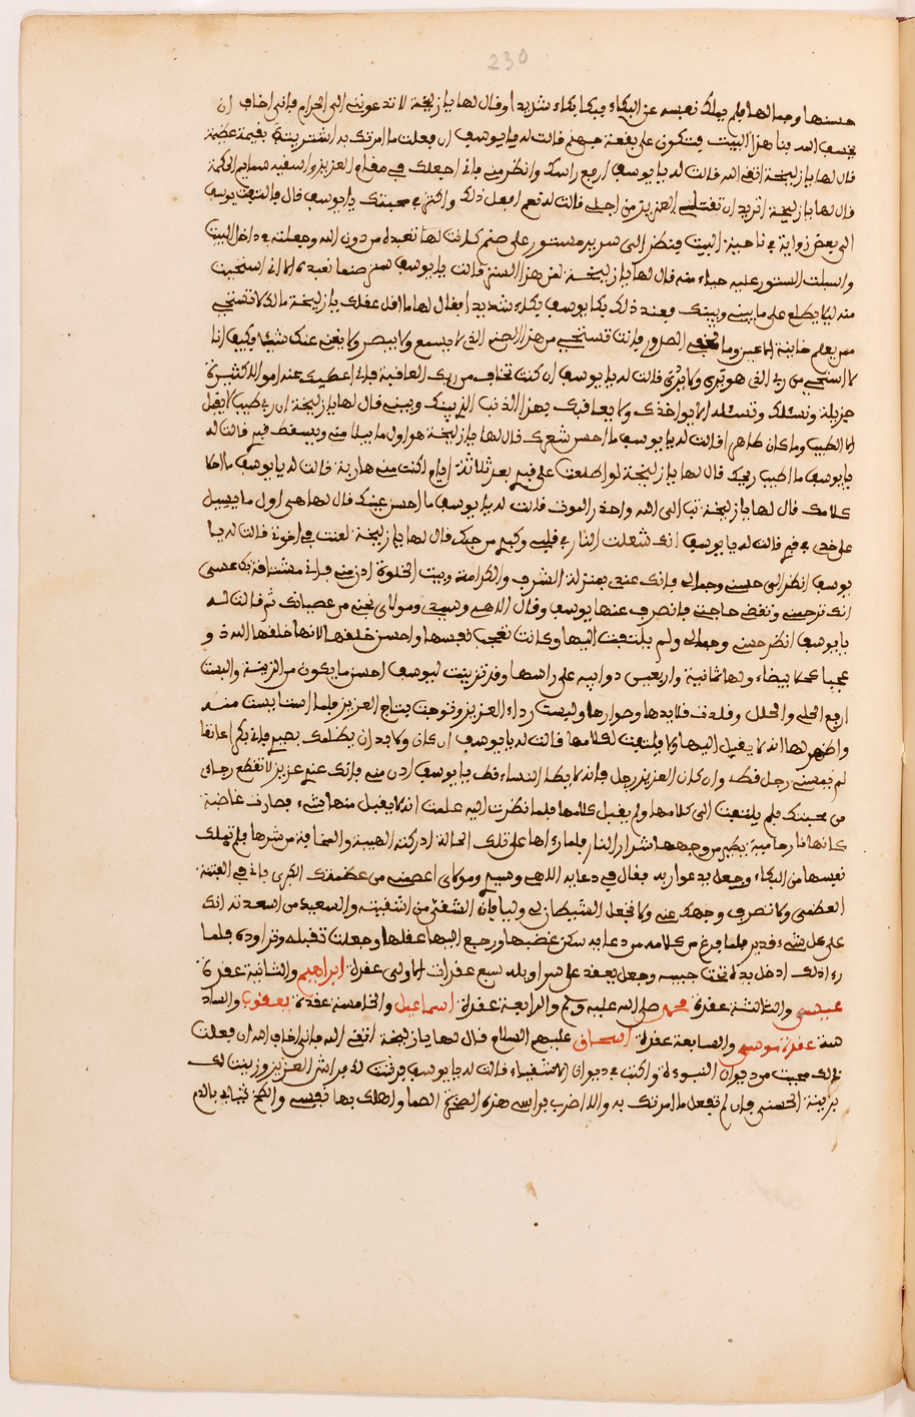 230
حسنها وجمالها فلم يملك نفسه عن البكاء فبكا بكاء شديدا وقال لها يا زليخة لا تدعونني الى الحرام فاني اخاف ان
يخسف الله بنا هذا البيت فنكون على بقعة جهنم قالت له يا يوسف ان فعلت ما امرتك به اشتريتك بقيمة عظيمة
قال لها يا زليخة اتقي الله قالت له يا يوسف ارفع راسك وانظر مني فانا اجعلك في مقام العزيز
قال لها يا زليخة اتريد ان تقتلي العزيز من اجلي قالت له نعم افعل ذلك واكثر في محبتك يا يوسف قال فالتفت يوسف
الى بعض زواية في ناحية البيت فنظر الى سرير مستور على صنم كانت لها تعبده من دون الله وجعلته في داخل البيت
واسبلت الستور عليه حياء منه قال لها يا زليخة لمن هذا الستر قالت يا يوسف ستر صنما نعبده الا اني استحيت
منه ليلا يطلع على ما بيني وبينك فعند ذلك بكا يوسف بكاء شديدا فقال لها ما اقل عقلك يا زليخة مالك لا تستحي
ممن يعلم خاينة الاعين وما تخفي الصدور فانت تستحي من هذا الصنم الذي لا يسمع ولا يبصر ولا يغني عنك شيئا وكيف انا
لا استحي من ربي الذي هو يرى ولا يُرى قالت له يا يوسف ان كنت تخاف من ربك العافية فانا اعطيك عنه اموالا كثيرة
جزيلة ونسئلك وتسئله الا يواخذك ولا يعاقبك بهذا الذنب الذي بينك وبيني قال لها يا زليخة ان ربي طيب لا يقبل
الا الطيب وما كان طاهرا قالت له يا يوسف ما احسن شعرك قال لها يا زليخة هو اول ما يبلا مني ويسقط في قبري قالت له
يا يوسف ما اطيب ريحك قال لها يا زليخة لو اطلعت على قبري بعد ثلاثة ايام لكنت مني هاربة قالت له يا يوسف ما احلا
كلامك قال لها يا زليخة تب الى الله واحذر الموت قالت له يا يوسف ما احسن عينك قال لها هي اول ما يسيل
على خدي في قبري قالت له يا يوسف انك شعلت النار في قلبي وكبدي من حبك قال لها يا زليخة لعنت في اخوتي قالت له يا
يوسف انظر الى حسني وجمالي فانك عندي بمنزلة الشرف والكرامة وبيت الخلوة ادن مني فاني مشتاقة بك عسى
انك ترحمني وتقضي حاجتي فانصرف عنها يوسف وقال الاهي وسيدي ومولاي نجني من عصيانك ثم قالت له
يا يوسف انظر حسني وجمالي ولم يلتفت اليها وكانت تعجب نفسها واحسن خلفها لانها خلفها الله ذو
عجبا بيضاء ولها ثمانية واربعين دوايبه على راسها وقد تزينت ليوسف احسن ما يكون من الزينة والبست
ارفع الحلي والحلل وقلدت قلايدها وجوارها ولبست رداء العزيز وتوجت بتاج العزيز فلما استايست منه
واظهر لها انه لا يقبل اليها ولا يلتفت لكلامها قالت له يا يوسف ان كان ولابد ان
لم يمسني رجل قط وان كان العزيز رجل فانه لا يطا النساء قط يا يوسف ادن مني فانك عندي عزيز لا تقطع رجاي
من محبتك فلم يلتفت الى كلامها ولم يقبل كلامها فلما نظرت اليه علمت انه لا يقبل منها شيء فصارت غاضبة
كانها نار حامية يطير من وجهها شرار النار فلما رءاها على تلك الحالة ادركته الهيبة والمخافة من شرها فلم تملك
نفسها من البكاء وجعل يدعوا ربه فقال في دعايه الاهي وسيدي ومولاي اعصمني من عظمتك الكبرى فاني في الفتنة
العظمى ولا تصرف وجهك عني ولا تجعل للشيطان لي وليا فان الشقي من اشقيته والسعيد من اسعدته انك
على كل شيء قدير فلما فرغ من كلامه من دعايه سكن غضبها ورجع اليها عقلها وجعلت تقبله وتراوده فلما
رءا ذلك ادخل يده تحت جيبه وجعل يعقد على سراويله سبع عقدات الاولى عقدة ابراهيم والثانية عقدة
عيسى والثالثة عقدة محمد صلى الله عليه وسلم والرابعة عقدة اسماعيل والخامسة عقدة يعقوب والساد
سة عقدة موسى والسابعة عقدة اسحاق عليهم السلام قال لها يا زليخة اتقي الله فاني اخاف الله ان فعلت
ذلك محيت من ديوان النبوءة واكتب في ديوان الاشقياء قالت له يا يوسف فرشت لك فراش العزيز وزينت لك
بزينة الحسنى فان لم تفعل ما امرتك به والا اضرب براسي هذه الصخرة الصما واهلك بها نفسي والطخ ثيابي بالدم